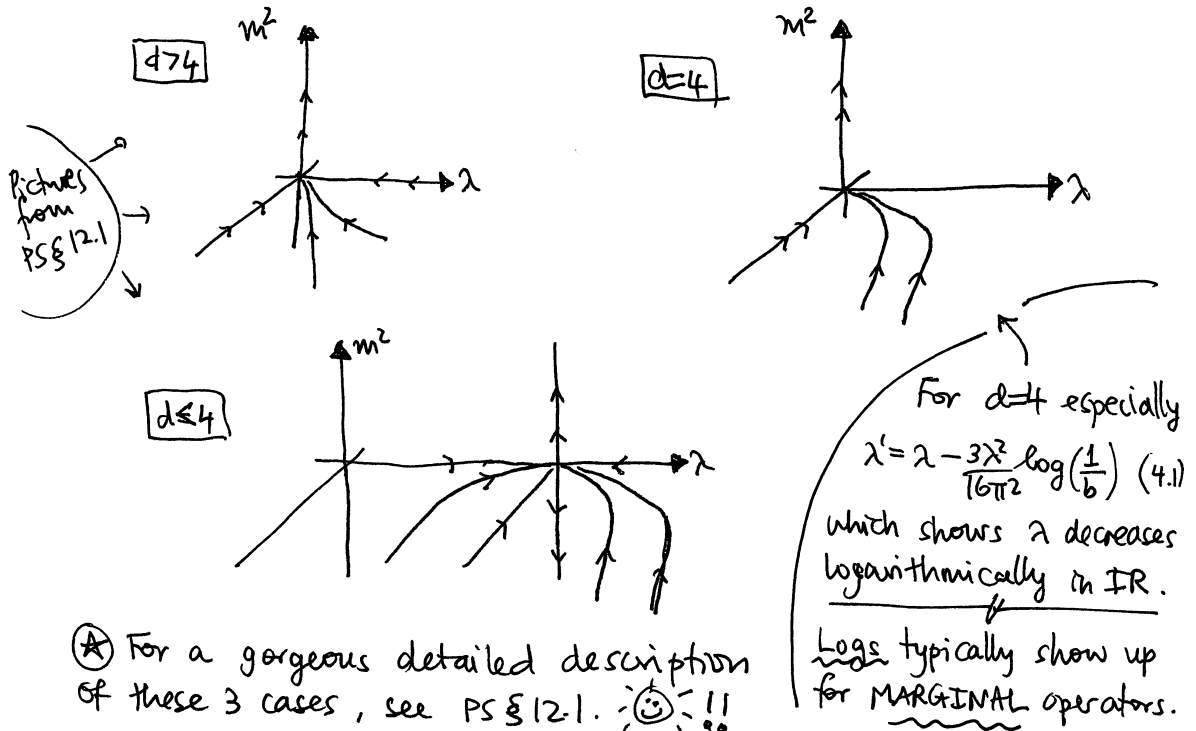 m²
d>4
λ
Pictures
from
PS§12.1
m²
d=4
λ
m²
d≲4
λ
For d=4 especially
λ' = λ - 3λ²/16π² log(1/b) (4.1)
which shows λ decreases
logarithmically in IR.
Logs typically show up
for MARGINAL operators.
For a gorgeous detailed description
of these 3 cases, see PS§12.1. !!